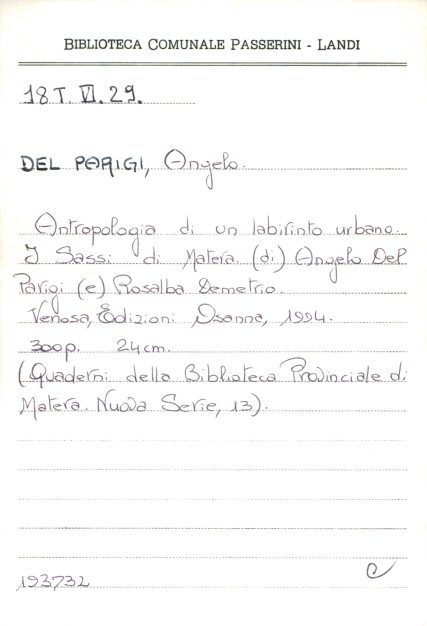 BIBLIOTECA COMUNALE PASSERINI - LANDI
18 T. VI. 29.
DEL PARIGI, Angelo.
Antropologia di un labirinto urbano.
I Sassi di Matera. (di) Angelo Del
Parigi (e) Rosalba Demetrio.
Venosa, Edizioni Osanna, 1994.
300p. 24cm.
(Quaderni della Biblioteca Provinciale di
Matera. Nuova Serie, 13).
193732
C